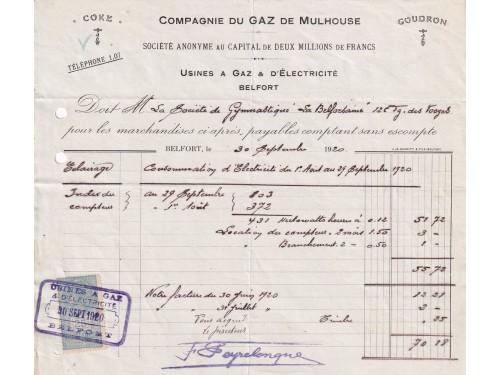 COKE
COMPAGNIE DU GAZ DE MULHOUSE
GOUDRON
SOCIÉTÉ ANONYME AU CAPITAL DE DEUX MILLIONS DE FRANCS
TÉLÉPHONE 1.07
USINES A GAZ & D'ÉLECTRICITÉ
BELFORT
Doit M La Société de Gymnastique "La Belfortaine" 12 Fg. des Vosges
pour les marchandises ci après, payables comptant sans escompte
BELFORT, le 30 Septembre 1920
Eclairage Consommation d'Electricité du 1er Août au 29 Septembre 1920
Index du compteur au 29 Septembre 803
" 1er Août 372
431 Hectowatts heures à 0.12 51 72
Location du compteur 2 mois 1.50 3 -
Branchement 2 - 0.50 1 -
55.72
Notre facture du 30 Juin 1920 12 21
" " 31 Juillet " 2 -
Pour acquit Timbre . 25
Le président
70 18
USINES A GAZ
& D'ÉLECTRICITÉ
30 SEPT 1920
BELFORT